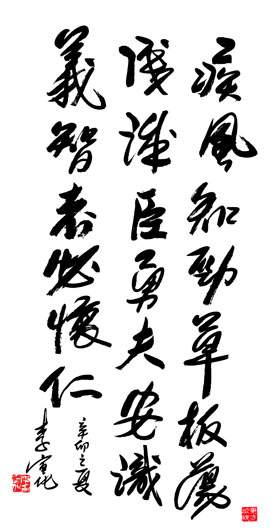 疾風知勁草板蕩
識誠臣勇夫安識
義智者必懷仁
辛卯之夏
李